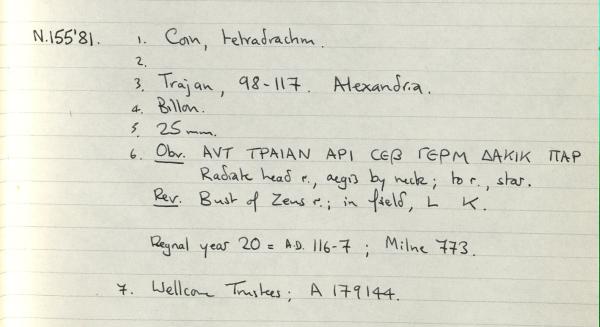 N.155'81. 1. Coin, tetradrachm.
2.
3. Trajan, 98-117. Alexandria.
4. Billon.
5. 25 mm.
6. Obv. ΑVΤ ΤΡΑΙΑΝ ΑΡΙ CЄΒ ΓЄΡΜ ΔΑΚΙΚ ΠΑΡ
Radiate head r., aegis by neck; to r., star.
Rev. Bust of Zeus r.; in field, L K.
Regnal year 20 = A.D. 116-7; Milne 773.
7. Wellcome Trustees; A 179144.